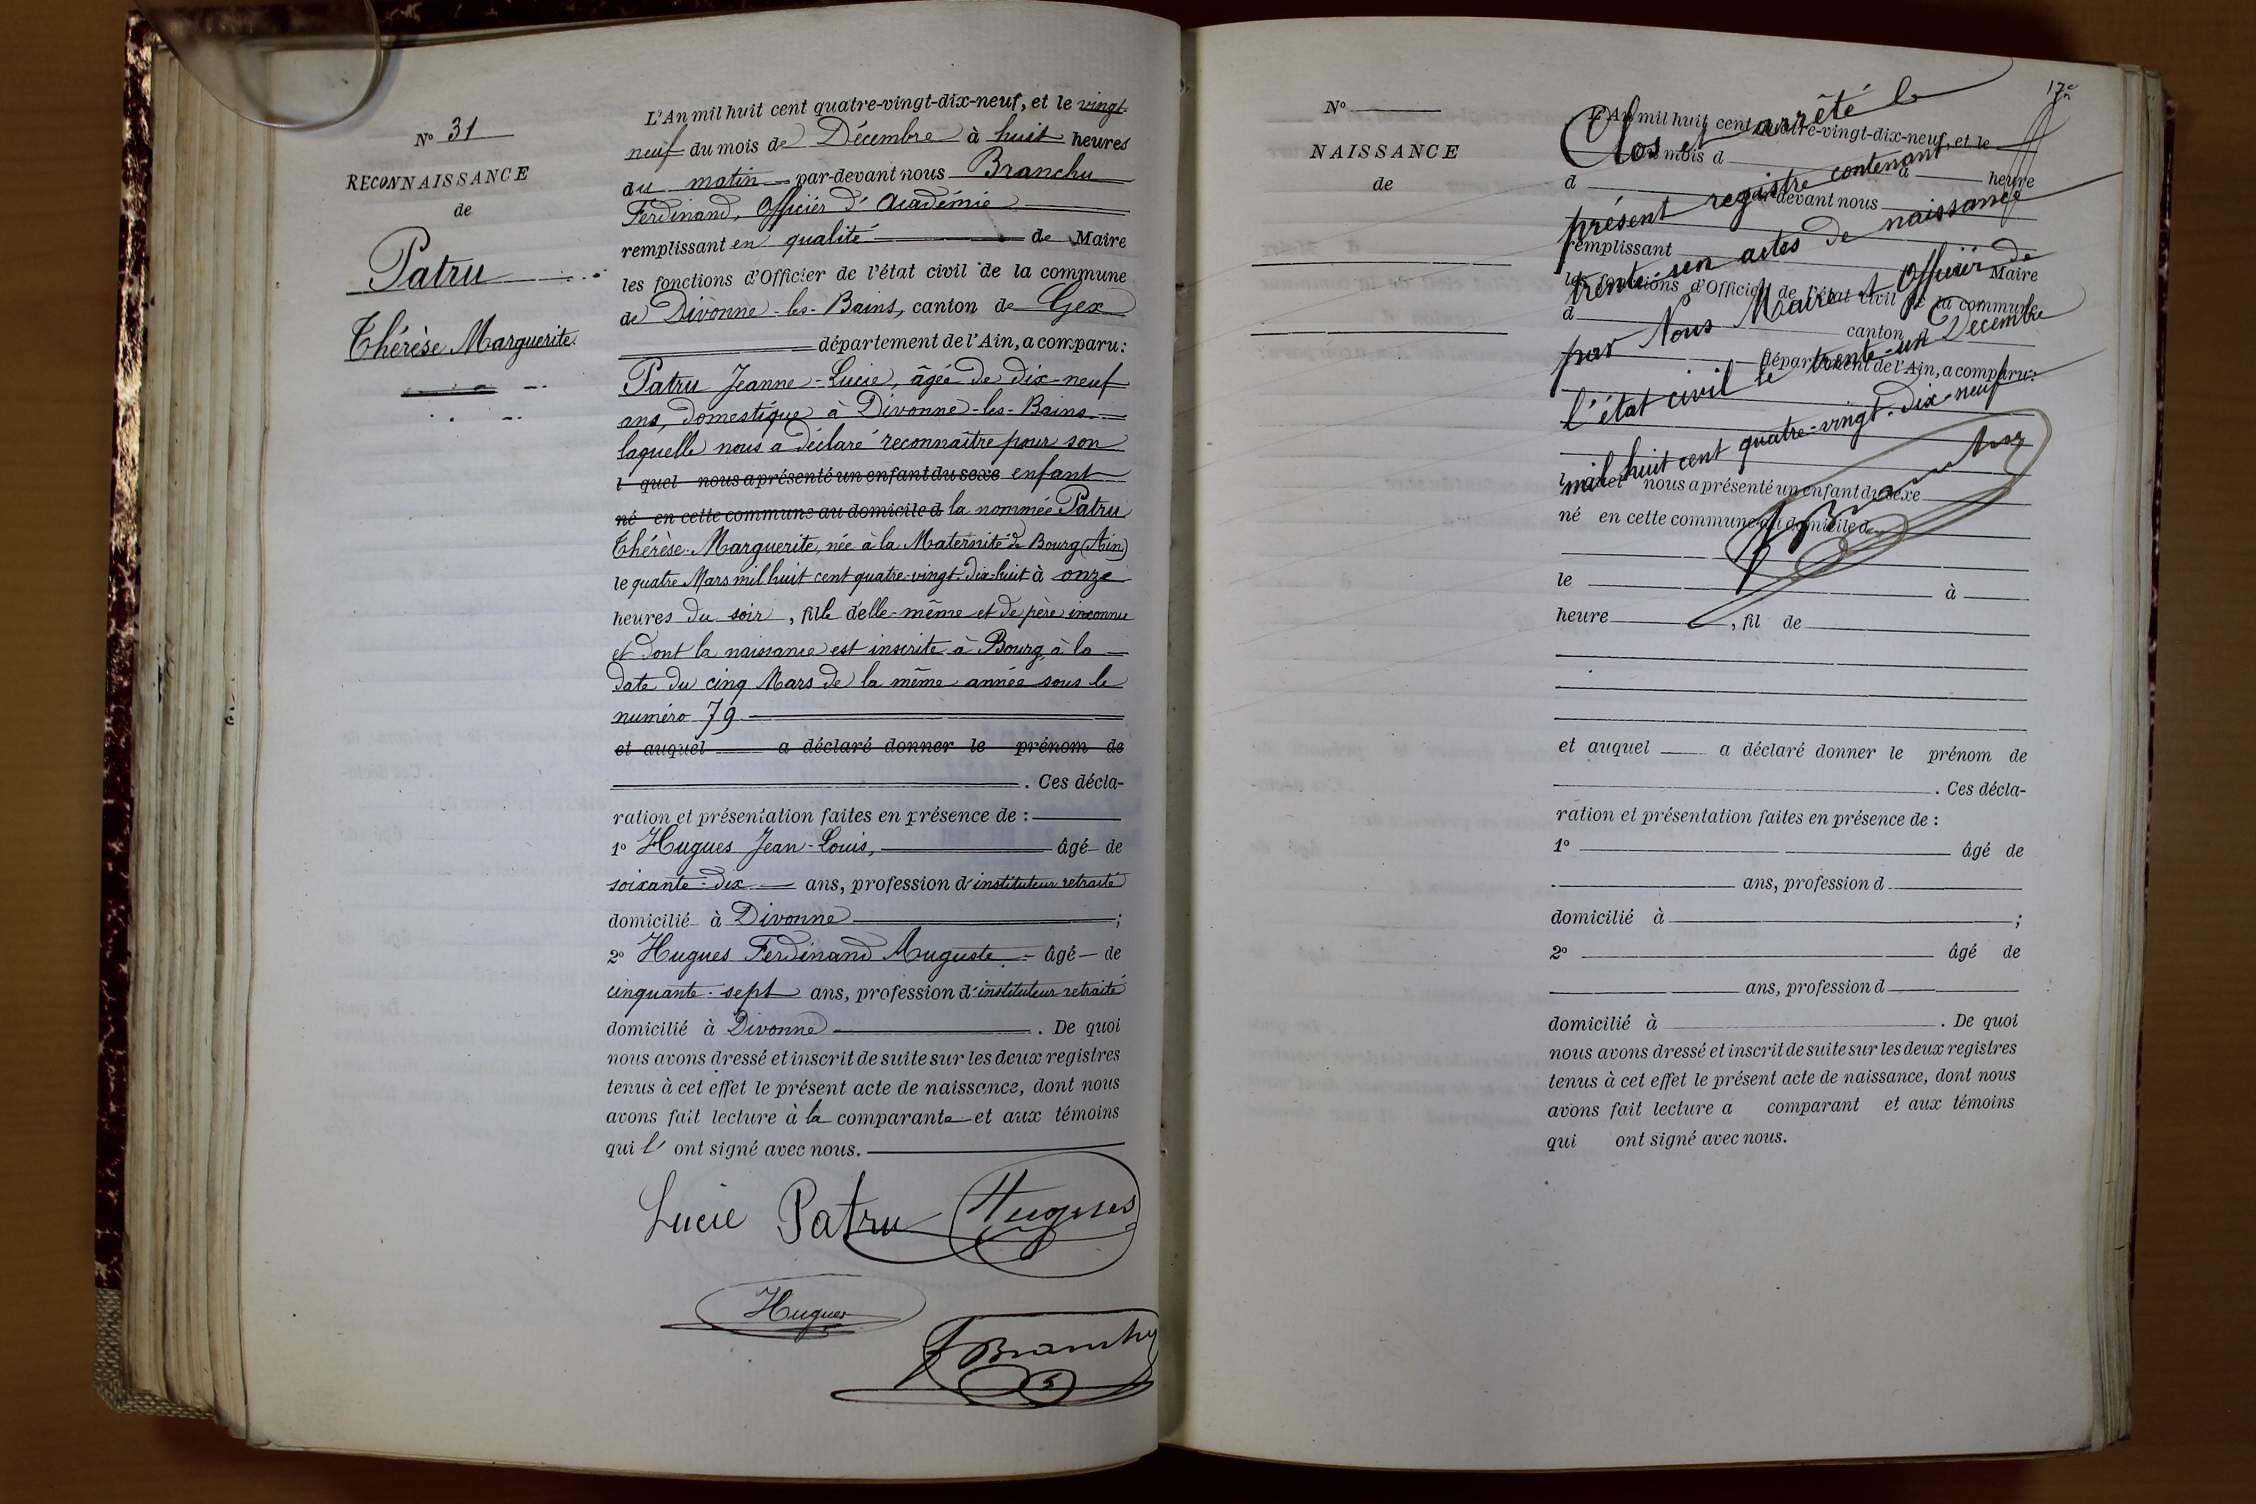 N° 31
RECONNAISSANCE
de
Patru
Thérèse Marguerite
L'An mil huit cent quatre-vingt-dix-neuf, et le vingt-
neuf du mois de Décembre à huit heures
du matin par-devant nous Branchu
Ferdinand, Officier d'Académie
remplissant en qualité de Maire
les fonctions d'Officier de l'état civil de la commune
de Divonne-les-Bains, canton de Gex
département de l'Ain, a comparu:
Patru Jeanne-Lucie, âgée de dix-neuf
ans, domestique à Divonne-les-Bains
laquelle nous a déclaré reconnaître pour son
l quel nous a présenté un enfant du sexe enfant
né en cette commune au domicile d la nommée Patru
Thérèse-Marguerite, née à la Maternité de Bourg (Ain)
le quatre Mars mil huit cent quatre-vingt-dix-huit à onze
heures du soir, fille d'elle-même et de père inconnu
et dont la naissance est inscrite à Bourg, à la
date du cinq Mars de la même année sous le
numéro 79
et auquel a déclaré donner le prénom de
. Ces décla-
ration et présentation faites en présence de :
1° Hugues Jean-Louis, âgé de
soixante-dix ans, profession d'instituteur retraité
domicilié à Divonne ;
2° Hugues Ferdinand Auguste âgé de
cinquante-sept ans, profession d'instituteur retraité
domicilié à Divonne . De quoi
nous avons dressé et inscrit de suite sur les deux registres
tenus à cet effet le présent acte de naissance, dont nous
avons fait lecture à la comparante et aux témoins
qui l' ont signé avec nous.
Lucie Patru Hugues
Hugues
F Branchu
17e
N°
NAISSANCE
de
L'An mil huit cent quatre-vingt-dix-neuf, et le
du mois d
d à heure
par-devant nous
remplissant
de Maire
les fonctions d'Officier de l'état civil de la commune
d canton d
département de l'Ain, a comparu:
Clos et arrêté le
présent registre contenant
trente-un actes de naissance
par Nous Maire et Officier de
l'état civil le trente-un Décembre
mil huit cent quatre-vingt-dix-neuf
F Branchu
l quel nous a présenté un enfant du sexe
né en cette commune au domicile d
le à
heure , fil de
et auquel a déclaré donner le prénom de
. Ces décla-
ration et présentation faites en présence de :
1° âgé de
ans, profession d
domicilié à ;
2° âgé de
ans, profession d
domicilié à . De quoi
nous avons dressé et inscrit de suite sur les deux registres
tenus à cet effet le présent acte de naissance, dont nous
avons fait lecture a comparant et aux témoins
qui ont signé avec nous.